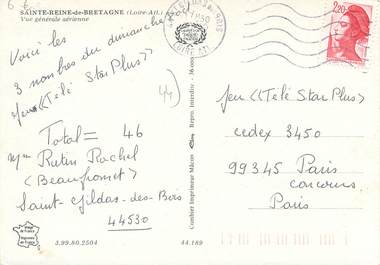 6 €
SAINTE-REINE-de-BRETAGNE (Loire-Atl.)
Vue générale aérienne
LOIRE ATL.
2,20
Voici les
3 nombres du dimanche
jeu <<Télé Star Plus>>
44
Total = 46
Rutin Rachel
(Beaufromet)
Saint-Gildas-des-Bois
44530
3.99.80.2504
44.189
Combier Imprimeur Mâcon
Repro. Interdite - 36
jeu <<Télé Star Plus>
cedex 3450
99345 Paris
concours
Paris